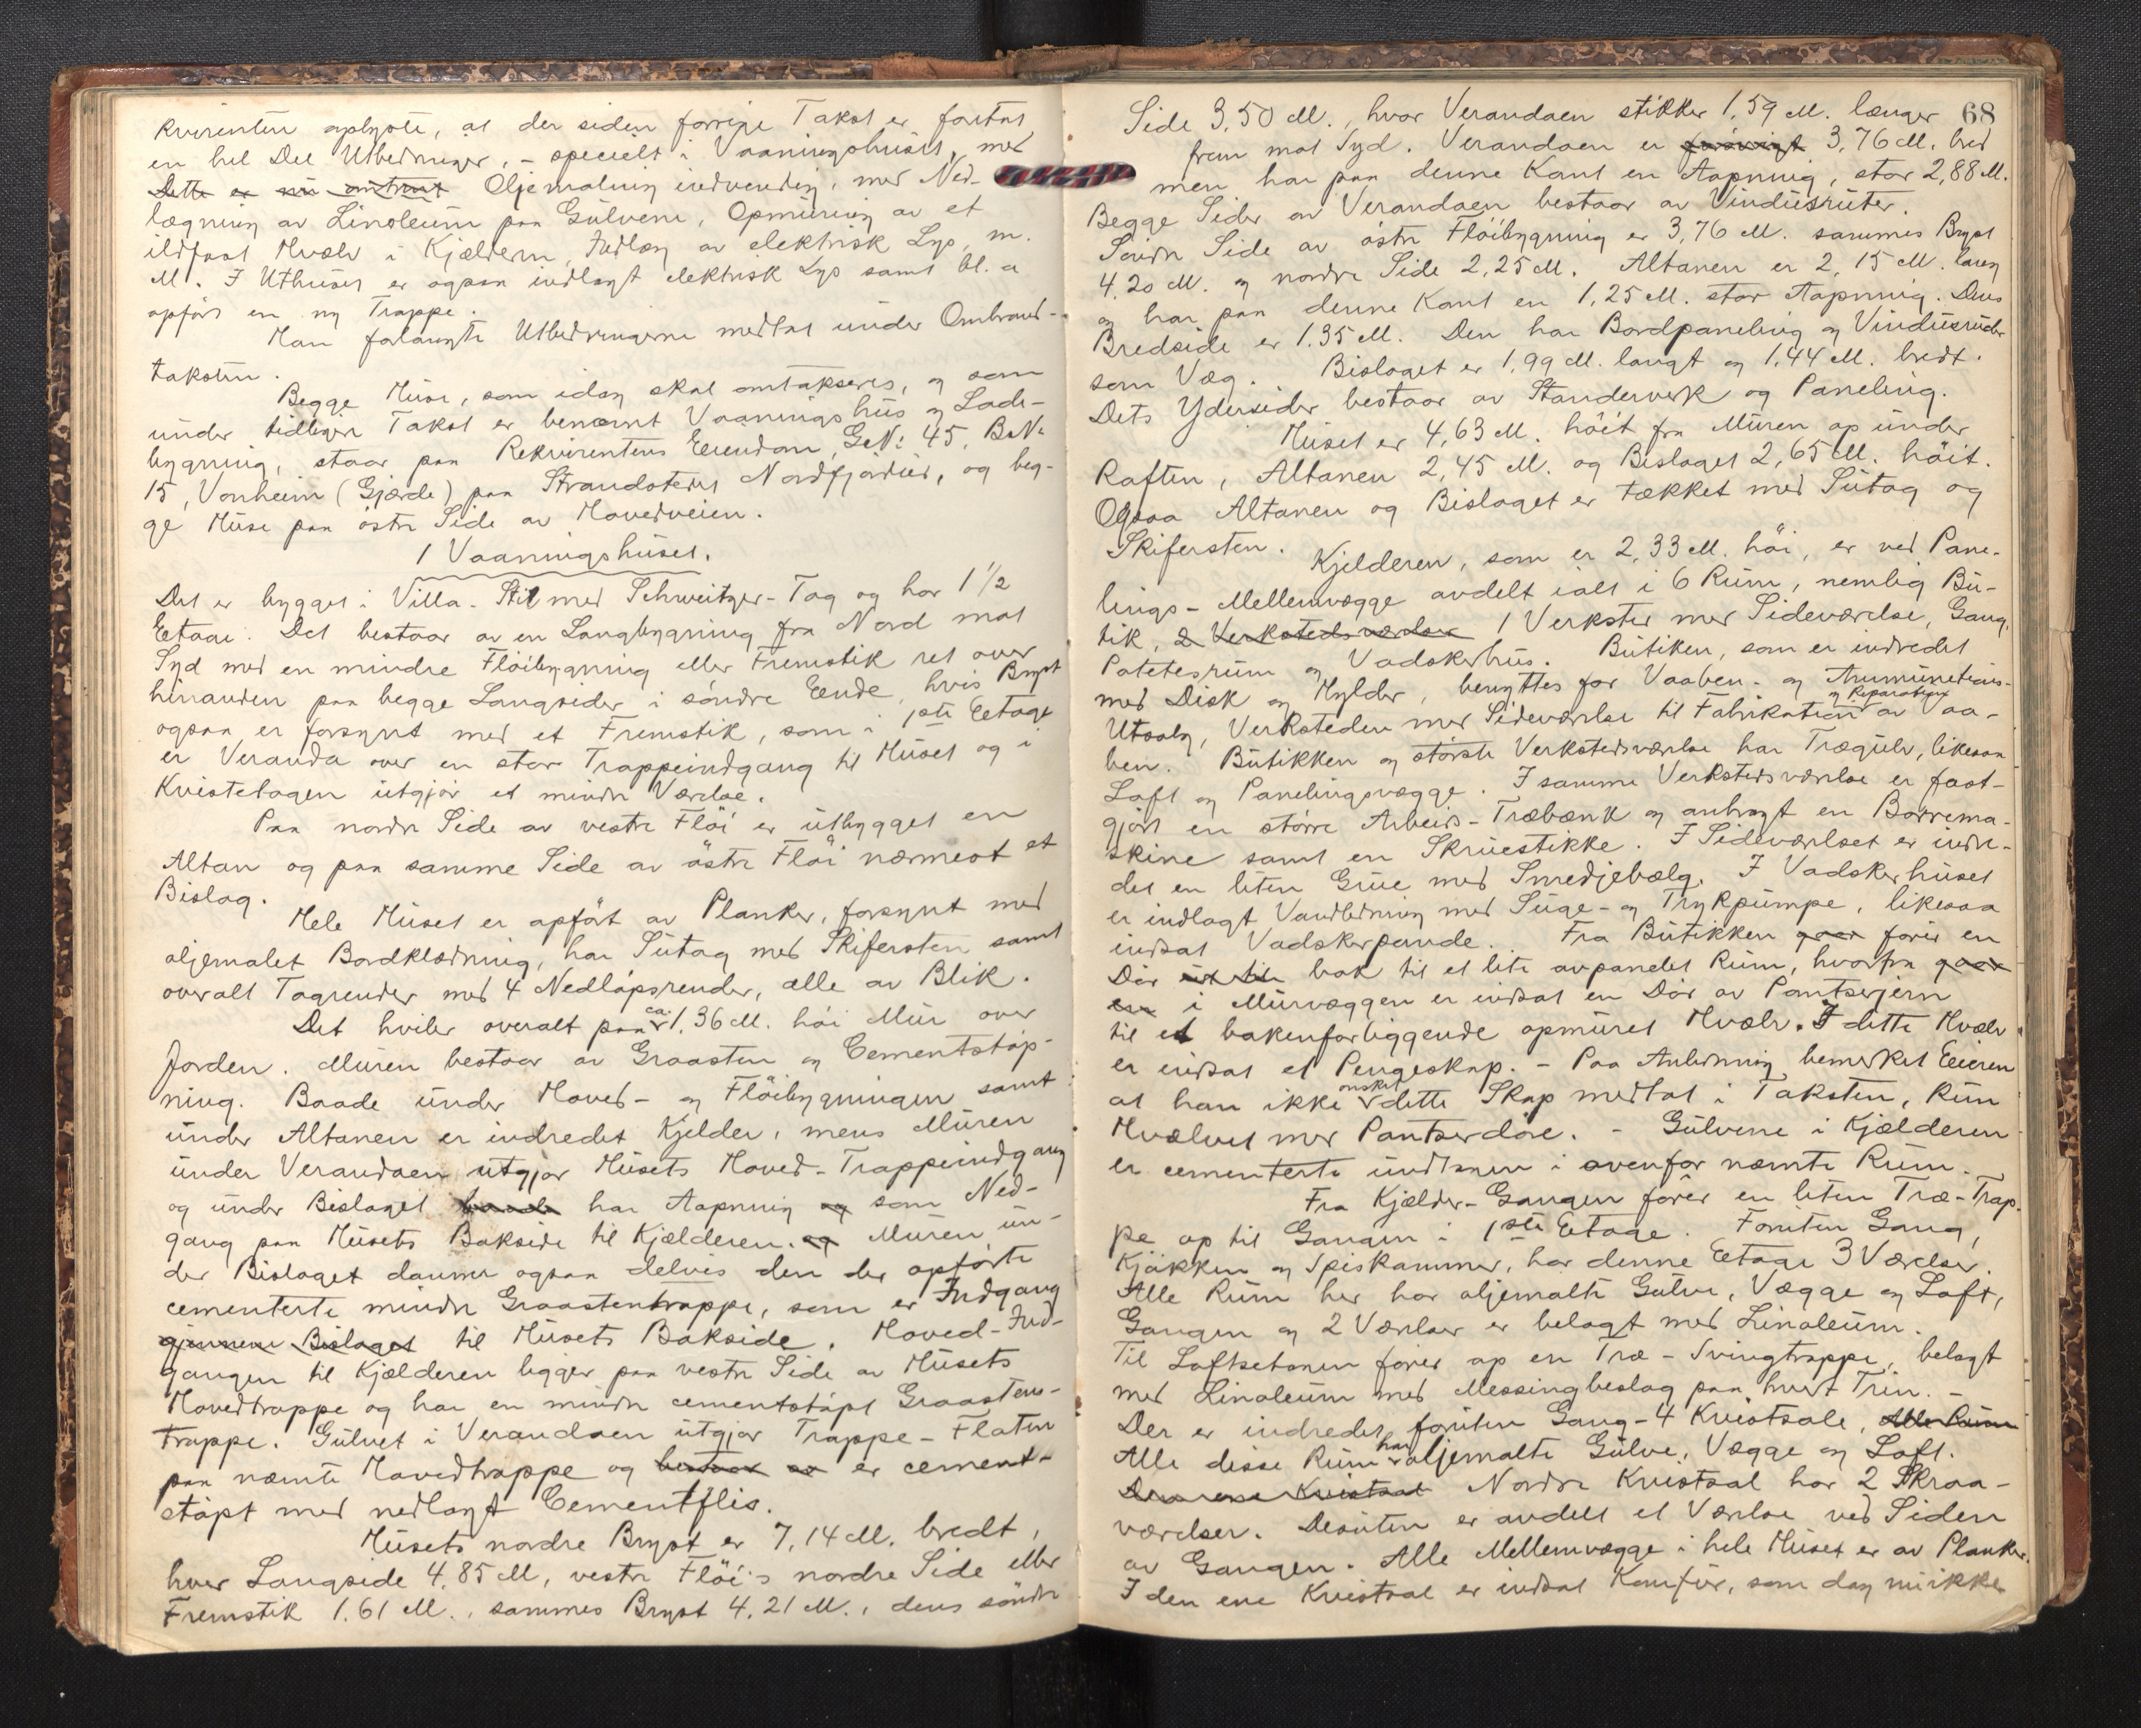 kvirenten oplyste, at der siden forrige Takst er foretat
en hel Del Utbedringer, - specielt i Vaaningshuset, med
Dette er nu omtrent Oljemaling indvendig, med Ned-
lægning av Linoleum paa Gulvene, Opmuring av et
ildfast Hvælv i Kjælderen, Indlæg av elektrisk Lys, m.
M. I Uthuset er ogsaa indlagt elektrisk Lys samt bl. a
opført en ny Trappe.
Han forlangte Utbedringerne medtat under Ombrand-
taksten.
Begge Huse, som idag skal omtakseres, og som
under tidligere Takst er benævnt Vaaningshus og Lade-
bygning, staar paa Rekvirentens Eiendom, G.N: 45, B.N:
15, Vonheim (Gjærde) paa Strandstedet Nordfjordeid, og beg-
ge Huse paa østre Side av Hovedveien.
1 Vaaningshuset.
Det er bygget i Villa-Stil med Schweitzer-Tag og har 1 1/2
Eetage. Det bestaar av en Langbygning fra Nord mot
Syd med en mindre Fløibygning eller Fremstik ret over
hinanden paa begge Langsider i søndre Eende, hvis Bryst
ogsaa er forsynt med et Fremstik, som i 1ste Eetage
er Veranda over en stor Trappeindgang til Huset og i
Kvistetagen utgjør et mindre Værelse.
Paa nordre Side av vestre Fløi er utbygget en
Altan og paa samme Side av østre Fløi nærmest et
Bislag.
Hele Huset er opført av Planker, forsynt med
oljemalet Bordklædning, har Sutag med Skifersten samt
overalt Tagrender med 4 Nedløpsrender, alle av Blik.
Det hviler overalt paa ca. 1,36 M. høi Mur over
Jorden. Muren bestaar av Graasten og Cementstøp-
ning. Baade under Hoved- og Fløibygningen samt
under Altanen er indredet Kjelder, mens Muren
under Verandaen utgjør Husets Hoved-Trappeindgang
og under Bislaget har Aapning og som Ned-
gang paa Husets Bakside til Kjælderen. og Muren un-
der Bislaget danner ogsaa delvis den der opførte
cementerte mindre Graastentrappe, som er Indgang
gjennem Bislaget til Husets Bakside. Hoved-Ind-
gangen til Kjælderen ligger paa vestre Side av Husets
Hovedtrappe og har en mindre cementstøpt Graastens-
trappe. Gulvet i Verandaen utgjør Trappe-Flaten
paa nævnte Hovedtrappe og bestaar av er cement-
støpt med nedlagt Cementflis.
Husets nordre Bryst er 7,14 M. bredt,
hver Langside 4,85 M, vestre Fløi's nordre Side eller
Fremstik 1,61 M., sammes Bryst 4,21 M., dens søndre
68
Side 3,50 M., hvor Verandaen stikker 1,59 M. længer
frem mot Syd. Verandaen er forøvrigt 3,76 M. bred
men har paa denne Kant en Aapning, stor 2,88 M.
Begge Sider av Verandaen bestaar av Vindusruter.
Søndre Side av østre Fløibygning er 3,76 M. sammes Bryst
4,20 M. og nordre Side 2,25 M. Altanen er 2,15 M. lang
og har paa denne Kant en 1,25 M. stor Aapning. Dens
Bredside er 1,35 M. Den har Bordpaneling og Vindusruder
som Væg. Bislaget er 1,99 M. langt og 1,44 M. bredt.
Dets Ydersider bestaar av Standerverk og Paneling.
Huset er 4,63 M. høit fra Muren op under
Raften, Altanen 2,45 M. og Bislaget 2,65 M. høit.
Ogsaa Altanen og Bislaget er tækket med Sutag og
Skifersten.
Kjelderen, som er 2,33 M. høi, er ved Pane-
lings-Mellemvægge avdelt ialt i 6 Rum, nemlig Bu-
tik, 2 Verkstedsværelser 1 Verksted med Sideværelse, Gang,
Potetesrum og Vadskerhus. Butiken, som er indredet
med Disk og Hylder, benyttes for Vaaben- og Ammunetions-
Utsalg, Verksteden med Sideværelse til Fabrikation og Reparation av Vaa-
ben. Butikken og største Verkstedsværelse har Trægulv, likesaa
Loft og Panelingsvægge. I samme Verkstedsværelse er fast-
gjort en større Arbeids-Træbænk og anbragt en Borrema-
skine samt en Skruestikke. I Sideværelset er indre-
det en liten Grue med Smedjebælg. I Vadskerhuset
er indlagt Vandledning med Suge- og Trykpumpe, likesaa
indsat Vadskerpande. Fra Butikken gaar fører en
Dør ut til bak til et lite avpanelet Rum, hvorfra gaar
en i Murvæggen er indsat en Dør av Pantserjern
til et bakenforliggende opmuret Hvælv. I dette Hvælv
er indsat et Pengeskap. - Paa Anledning bemerket Eeieren
at han ikke ønsket dette Skap medtat i Taksten, kun
Hvælvet med Pantserdøre. - Gulvene i Kjælderen
er cementerte undtagen i ovenfor nævnte Rum.
Fra Kjælder-Gangen fører en liten Træ-Trap-
pe op til Gangen i 1ste Eetage. Foruten Gang,
Kjøkken og Spiskammer, har denne Eetage 3 Værelser.
Alle Rum her har oljemalte Gulve, Vægge og Loft,
Gangen og 2 Værelser er belagt med Linoleum.
Til Loftsetagen fører op en Træ-Svingtrappe, belagt
med Linoleum med Messingbeslag paa hvert Trin. -
Der er indredet foruten Gang - 4 Kvistsale, Alle Rum
Alle disse Rum har oljemalte Gulve, Vægge og Loft.
Den ene Kvistsal Nordre Kvistsal har 2 Skraa-
værelser. Desuten er avdelt et Værelse ved Siden
av Gangen. Alle Mellemvægge i hele Huset er av Planker.
I den ene Kvistsal er indsat Komfur, som dog nu ikke